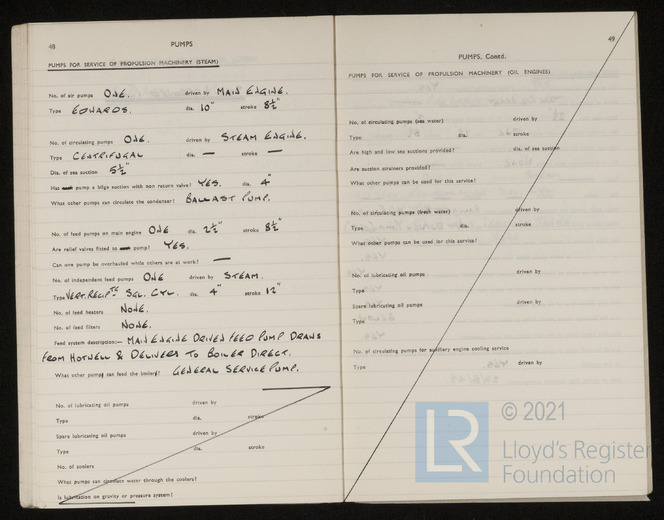 48
PUMPS
PUMPS FOR SERVICE OF PROPULSION MACHINERY (STEAM)
No. of air pumps ONE. driven by MAIN ENGINE.
Type EDWARDS. dia. 10" stroke 8½"
No. of circulating pumps ONE. driven by STEAM ENGINE.
Type CENTRIFUGAL dia. — stroke —
Dia. of sea suction 5½"
Has pump a bilge suction with non return valve? YES. dia. 4"
What other pumps can circulate the condenser? BALLAST PUMP.
No. of feed pumps on main engine ONE dia. 2½" stroke 8½"
Are relief valves fitted to pump? YES.
Can one pump be overhauled while others are at work? —
No. of independent feed pumps ONE driven by STEAM.
Type VERT. RECIPTG SGL. CYL. dia. 4" stroke 12"
No. of feed heaters NONE.
No. of feed filters NONE.
Feed system description:— MAIN ENGINE DRIVEN FEED PUMP DRAWS
FROM HOTWELL & DELIVERS TO BOILER DIRECT.
What other pumps can feed the boilers? GENERAL SERVICE PUMP.
No. of lubricating oil pumps driven by
Type dia. stroke
Spare lubricating oil pumps driven by
Type dia. stroke
No. of coolers
What pumps can circulate water through the coolers?
Is lubrication on gravity or pressure system?
49
PUMPS, Contd.
PUMPS FOR SERVICE OF PROPULSION MACHINERY (OIL ENGINES)
No. of circulating pumps (sea water) driven by
Type dia. stroke
Are high and low sea suctions provided? dia. of sea suction
Are suction strainers provided?
What other pumps can be used for this service?
No. of circulating pumps (fresh water) driven by
Type dia. stroke
What other pumps can be used for this service?
No. of lubricating oil pumps driven by
Type
Spare lubricating oil pumps driven by
Type
No. of circulating pumps for auxiliary engine cooling service
Type driven by
LR © 2021
Lloyd's Register
Foundation